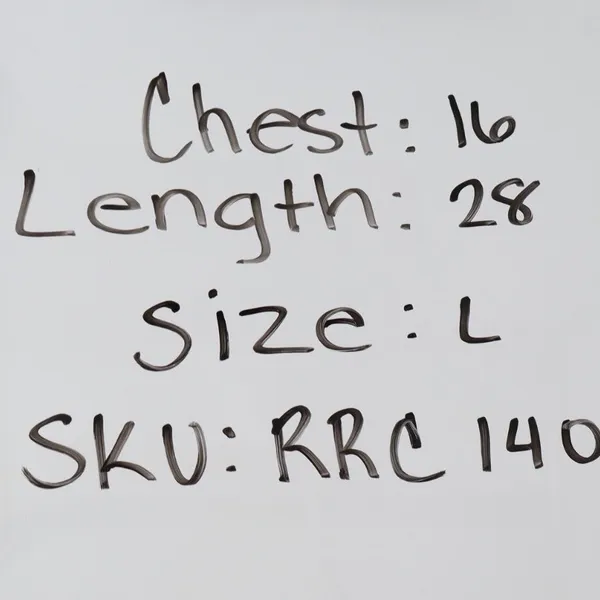 Chest: 16
Length: 28
Size: L
SKU: RRC 140